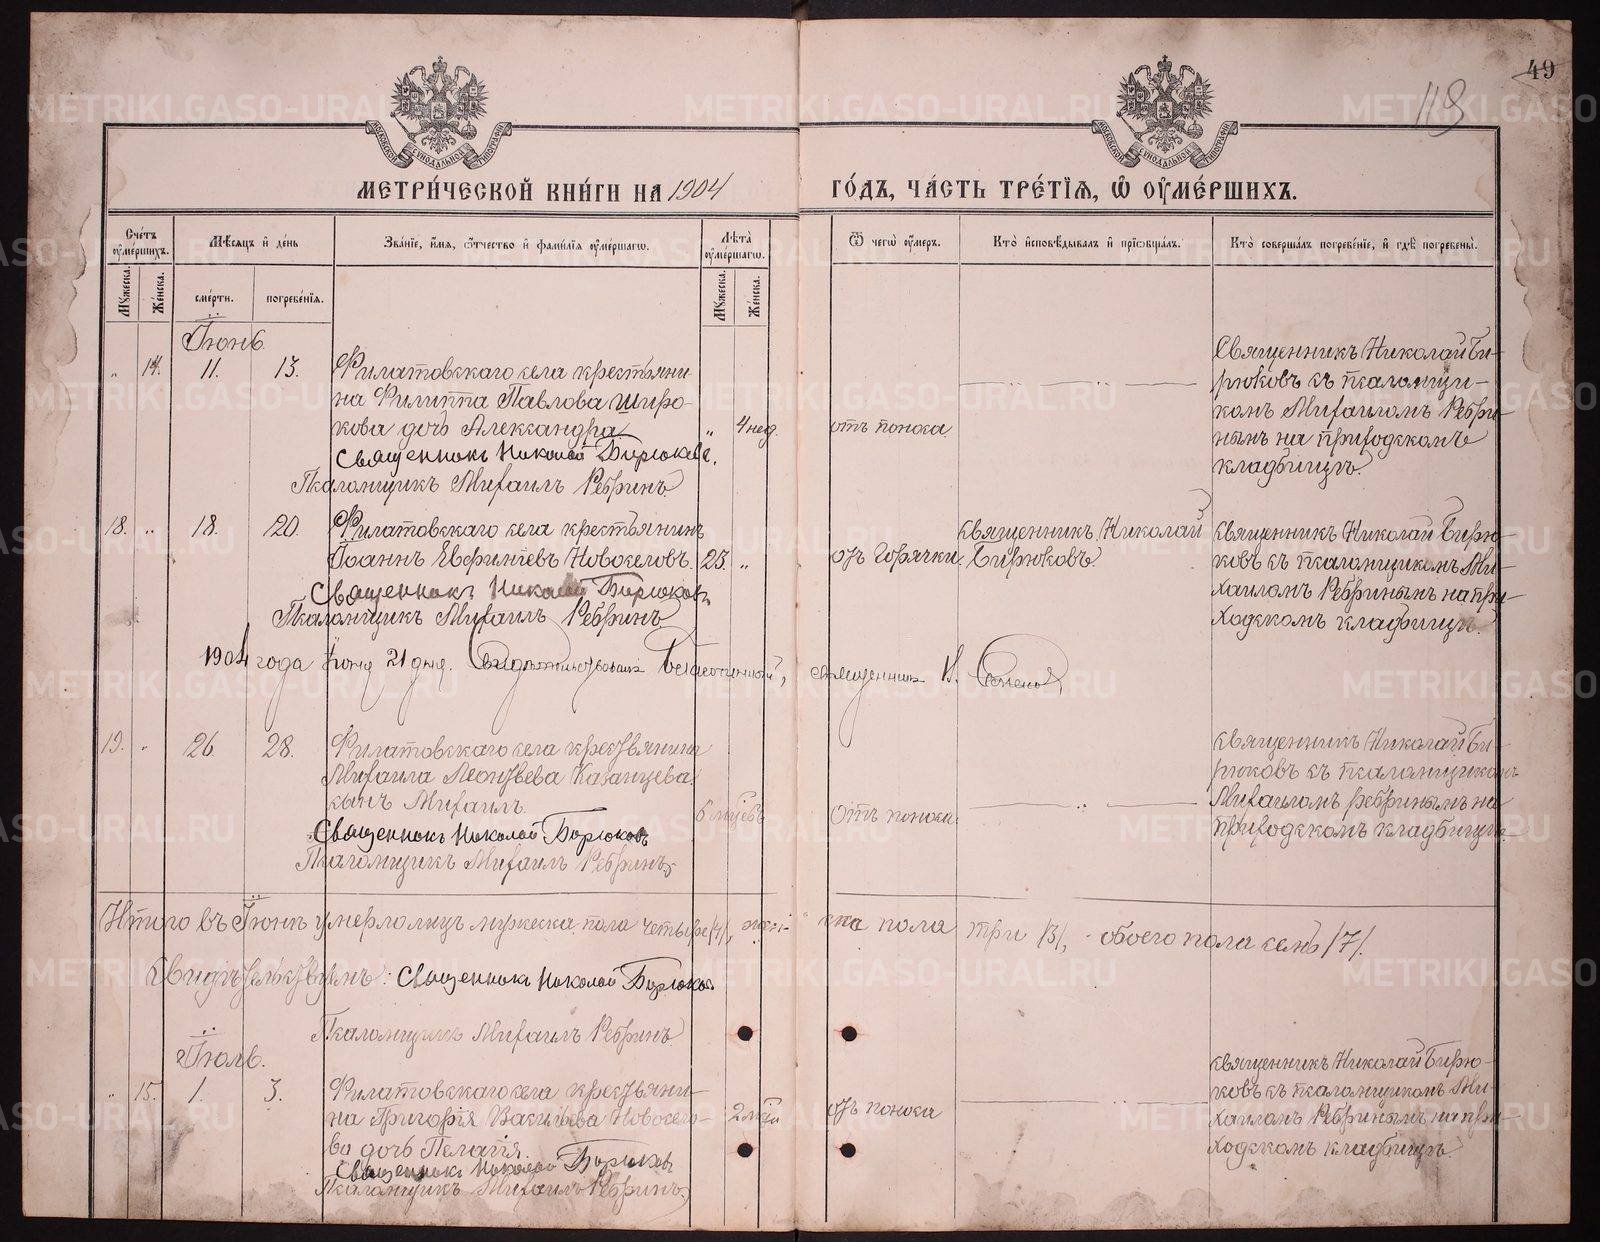 49
119
МЕТРИ́ЧЕСКОЙ КНИ́ГИ НА 1904 ГО́ДЪ, ЧА́СТЬ ТРЕ́ТЇѦ, Ѽ ОУМЕ́РШИХЪ.
Сче́тъ оумершихъ.
Мѣ́сѧцъ и҆ де́нь
Зва́нїе, и҆́мѧ, ѻ҆́тчество и҆ фами́лїѧ оумершагѡ.
Лѣ́та оумершагѡ.
Ѿ чегѡ̀ оу҆́меръ.
Кто̀ и҆сповѣ́дывалъ и҆ прїѡбща́лъ.
Кто̀ соверша́лъ погребе́нїе, и҆ гдѣ̀ погребены̀.
Мꙋ́жеска.
Же́нска.
сме́рти.
погребе́нїѧ.
Мꙋ́жеска.
Же́нска.
Іюнь
„ 14. 11. 13. Филатовскаго села крестьяни-
на Филиппа Павлова Широ-
кова дочь Александра. „ 4 нед.
Священникъ Николай Бирюковъ.
Псаломщикъ Михаилъ Ребринъ
отъ поноса
Священникъ Николай Би-
рюковъ съ псаломщи-
комъ Михаиломъ Ребри-
нымъ на приходскомъ
кладбищѣ.
18. „ 18. 20. Филатовскаго села крестьянинъ
Іоаннъ Новоселовъ. 25. „
Священникъ Николай Бирюковъ
Псаломщикъ Михаилъ Ребринъ
отъ горячки.
священникъ Николай
Бирюковъ.
священникъ Николай Бирю-
ковъ съ псаломщикомъ Ми-
хаиломъ Ребринымъ на при-
ходскомъ кладбищѣ.
1904 года Іюня 21 дня. Свидѣтельствовалъ Благочинный, священникъ
19. „ 26. 28. Филатовскаго села крестьянина
Михаила Леонтьева Казанцева
сынъ Михаилъ. 6 мцевъ
Священникъ Николай Бирюковъ
Псаломщикъ Михаилъ Ребринъ
отъ поноса.
священникъ Николай Би-
рюковъ съ псаломщикомъ
Михаиломъ Ребринымъ на
приходскомъ кладбищѣ.
Итого въ Іюнѣ умерло лицъ мужеска пола четыре /4/, жен-ска пола три /3/, - обоего пола семь /7/.
Свидѣтельствуемъ: Священникъ Николай Бирюковъ.
Псаломщикъ Михаилъ Ребринъ.
Іюль.
„ 15. 1. 3. Филатовскаго села крестьяни-
на Григорія Васильева Новосело-
ва дочь Пелагія.
Священникъ Николай Бирюковъ
Псаломщикъ Михаилъ Ребринъ
отъ поноса
священникъ Николай Бирю-
ковъ съ псаломщикомъ Ми-
хаиломъ Ребринымъ на при-
ходскомъ кладбищѣ.
METRIKI.GASO-URAL.RU